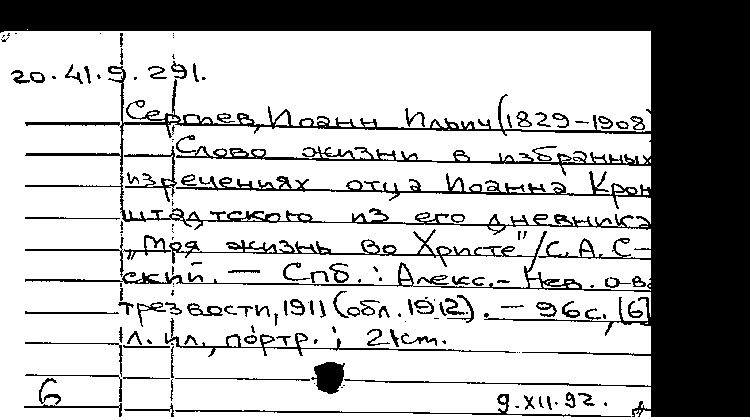 20.41.9.291.
Сергиев, Иоанн Ильич (1829-1908)
Слово жизни в избранных
изречениях отца Иоанна Крон
штадтского из его дневника
„Моя жизнь во Христе"/С.А.С-
ский. — Спб.: Алекс.-Нев. о-во
трезвости, 1911 (обл. 1912). — 96с., [6]
л. ил., портр.; 21cm.
6
9.XII.92.